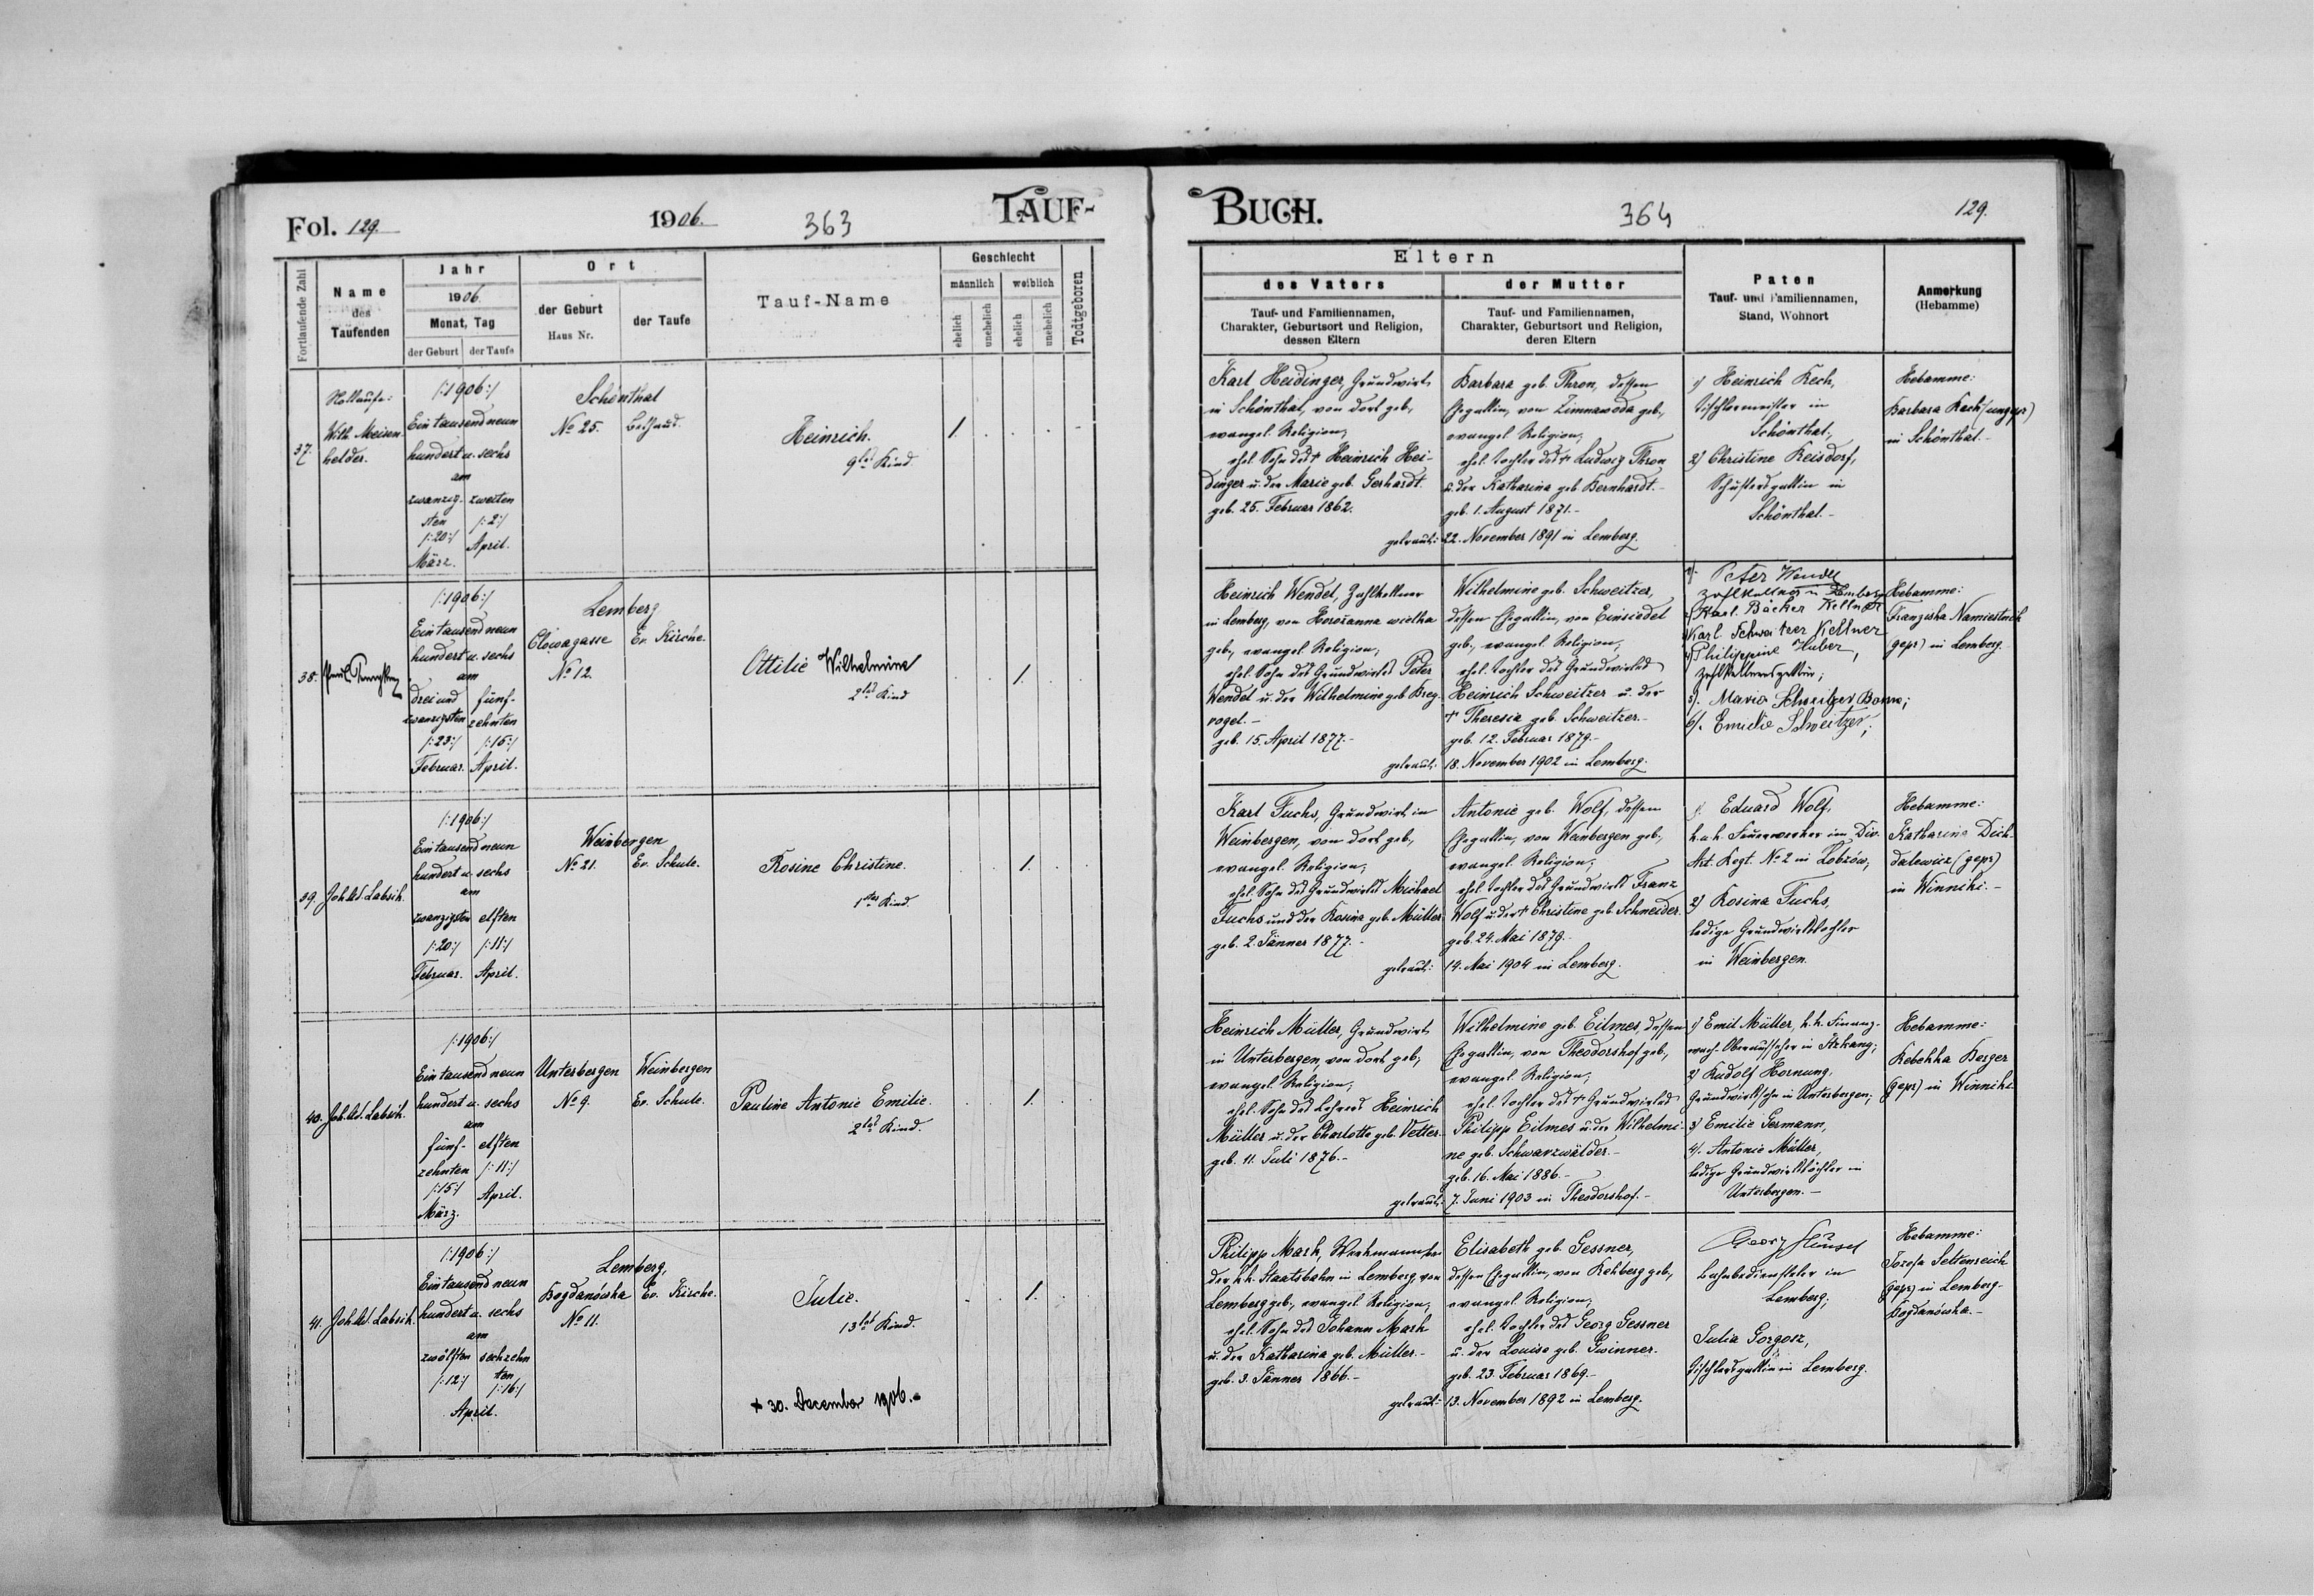 Fol. 129.
1906.
363
TAUF-
Fortlaufende Zahl
Name
des
Taufenden
Jahr
1906.
Monat, Tag
der Geburt
der Taufe
Ort
der Geburt
Haus Nr.
der Taufe
Tauf-Name
Geschlecht
männlich
weiblich
ehelich
unehelich
ehelich
unehelich
Todtgeboren
37.
Nottaufe:
Wilh. Meisen-
helder.
/:1906:/
Eintausend neun
hundert u. sechs
am
zwanzig-
sten
/:20:/
März.
zweiten
/:2:/
April.
Schönthal
No 25.
Bethaus.
Heinrich.
9tes Kind.
1.
38.
/:1906:/
Eintausend neun
hundert u. sechs
am
drei und
zwanzigsten
/:23:/
Februar.
fünf-
zehnten
/:15:/
April.
Lemberg
Clowagasse
No 12.
Ev. Kirche.
Ottilie Wilhelmine
2tes Kind
1.
39.
Joh. Ad. Labsik.
/:1906:/
Eintausend neun
hundert u. sechs
am
zwanzigsten
/:20:/
Februar.
elften
/:11:/
April.
Weinbergen
No 21.
Ev. Schule.
Rosine Christine.
1tes Kind.
1.
40.
Joh. Ad. Labsik.
/:1906:/
Eintausend neun
hundert u. sechs
am
fünf-
zehnten
/:15:/
März.
elften
/:11:/
April.
Unterbergen
No 9.
Weinbergen
Ev. Schule.
Pauline Antonie Emilie.
2tes Kind.
1.
41.
Joh. Ad. Labsik.
/:1906:/
Eintausend neun
hundert u. sechs
am
zwölften
/:12:/
sechzehn
ten
/:16:/
April.
Lemberg,
Bogdanówka
No 11.
Ev. Kirche.
Julie.
13tes Kind.
+ 30. December 1906.-
1.
BUCH.
364
129.
Eltern
des Vaters
Tauf- und Familiennamen,
Charakter, Geburtsort und Religion,
dessen Eltern
der Mutter
Tauf- und Familiennamen,
Charakter, Geburtsort und Religion,
deren Eltern
Paten
Tauf- und Familiennamen,
Stand, Wohnort
Anmerkung
(Hebamme)
Karl Heidinger, Grundwirt
in Schönthal, von dort geb.,
evangel. Religion;
ehel. Sohn des + Heinrich Hei-
dinger u. der Marie geb. Gerhardt.
geb. 25. Februar 1862.
getraut:
Barbara geb. Thron, dessen
Ehegattin, von Zimnawoda geb.,
evangel. Religion;
ehel. Tochter des + Ludwig Thron
u. der Katharina geb. Bernhardt.-
geb. 1. August 1871.-
22. November 1891 in Lemberg.
1) Heinrich Kech,
Tischlermeister in
Schönthal;
2) Christine Reisdorf,
Schustersgattin in
Schönthal.-
Hebamme:
Barbara Kech (ungepr)
in Schönthal.-
Heinrich Wendel, Zahlkellner
in Lemberg, von Horożanna wielka
geb., evangel. Religion;
ehel. Sohn des Grundwirtes Peter
Wendel u. der Wilhelmine geb. Breg-
vogel.-
geb. 15. April 1877.-
getraut:
Wilhelmine geb. Schweitzer,
dessen Ehegattin, von Einsiedel
geb., evangel. Religion;
ehel. Tochter des Grundwirtes
Heinrich Schweitzer u. der
+ Theresia geb. Schweitzer.-
geb. 12. Februar 1879.-
18. November 1902 in Lemberg.
1). Peter Wendel
Zahlkellner in Lemberg
2) Karl. Bäcker Kellner
3) Karl. Schweitzer Kellner
4) Philippine Huber,
Zahlkellnersgattin;
5). Maria Schweitzer Bonne;
6). Emilie Schweitzer;
Hebamme:
Franziska Namiestnik
(gepr) in Lemberg.
Karl Fuchs, Grundwirt in
Weinbergen, von dort geb.,
evangel. Religion;
ehel. Sohn des Grundwirtes Michael
Fuchs und der Rosina geb. Müller
geb. 2. Jänner 1877.-
getraut:
Antonie geb. Wolf, dessen
Ehegattin, von Weinbergen geb.,
evangel. Religion;
ehel. Tochter des Grundwirts Franz
Wolf u. der + Christine geb. Schneider.
geb. 24. Mai 1879.-
14. Mai 1904 in Lemberg.
1. Eduard Wolf,
k. u. k. Feuerwerker im Div.
Art. Regt. No 2 in Łobzów;
2) Rosina Fuchs,
ledige Grundwirtstochter
in Weinbergen.
Hebamme:
Katharina Dich-
dalewicz (gepr)
in Winniki.-
Heinrich Müller, Grundwirt
in Unterbergen, von dort geb.,
evangel. Religion;
ehel. Sohn des Lehrers Heinrich
Müller u. der Charlotte geb. Vetter.
geb. 11. Juli 1876.-
getraut:
Wilhelmine geb. Eilmes, dessen
Ehegattin, von Theodorshof geb.,
evangel. Religion;
ehel. Tochter des + Grundwirtes
Philipp Eilmes u. der Wilhelmi-
ne geb. Schwarzwälder.-
geb. 16. Mai 1886.-
7. Juni 1903 in Theodorshof.-
1) Emil Müller, k. k. Finanz-
wach-Oberaufseher in
2) Rudolf Hornung,
Grundwirtssohn in Unterbergen;
3) Emilie Germann,
4). Antonie Müller,
ledige Grundwirtstöchter in
Unterbergen.-
Hebamme:
Rebekka Berger
(gepr) in Winniki
Philipp Mark, Werkmann bei
der k. k. Staatsbahn in Lemberg, von
Lemberg geb., evangel. Religion;
ehel. Sohn des Johann Mark
u. der Katharina geb. Müller.-
geb. 3. Jänner 1866.-
getraut:
Elisabeth geb. Gessner,
dessen Ehegattin, von Rehberg geb.,
evangel. Religion;
ehel. Tochter des Georg Gessner
u. der Louise geb. Gwinner.
geb. 23. Februar 1869.-
13. November 1892 in Lemberg.
Georg
Bahnbediensteter in
Lemberg;
Julia Gorgosz,
Tischlersgattin in Lemberg.
Hebamme:
Josefa Seltenreich
(gepr) in Lemberg-
Bogdanówka.-